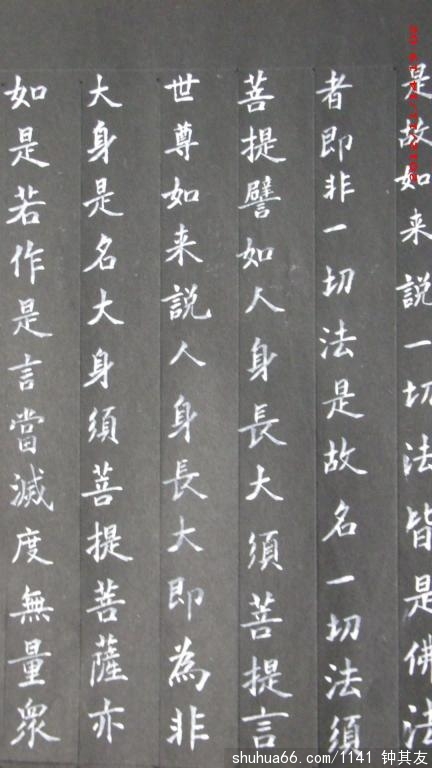 是故如来説一切法皆是佛法
者即非一切法是故名一切法須
菩提譬如人身長大須菩提言
世尊如来説人身長大即為非
大身是名大身須菩提菩薩亦
如是若作是言當滅度無量衆
shuhua66.com/1141 钟其友